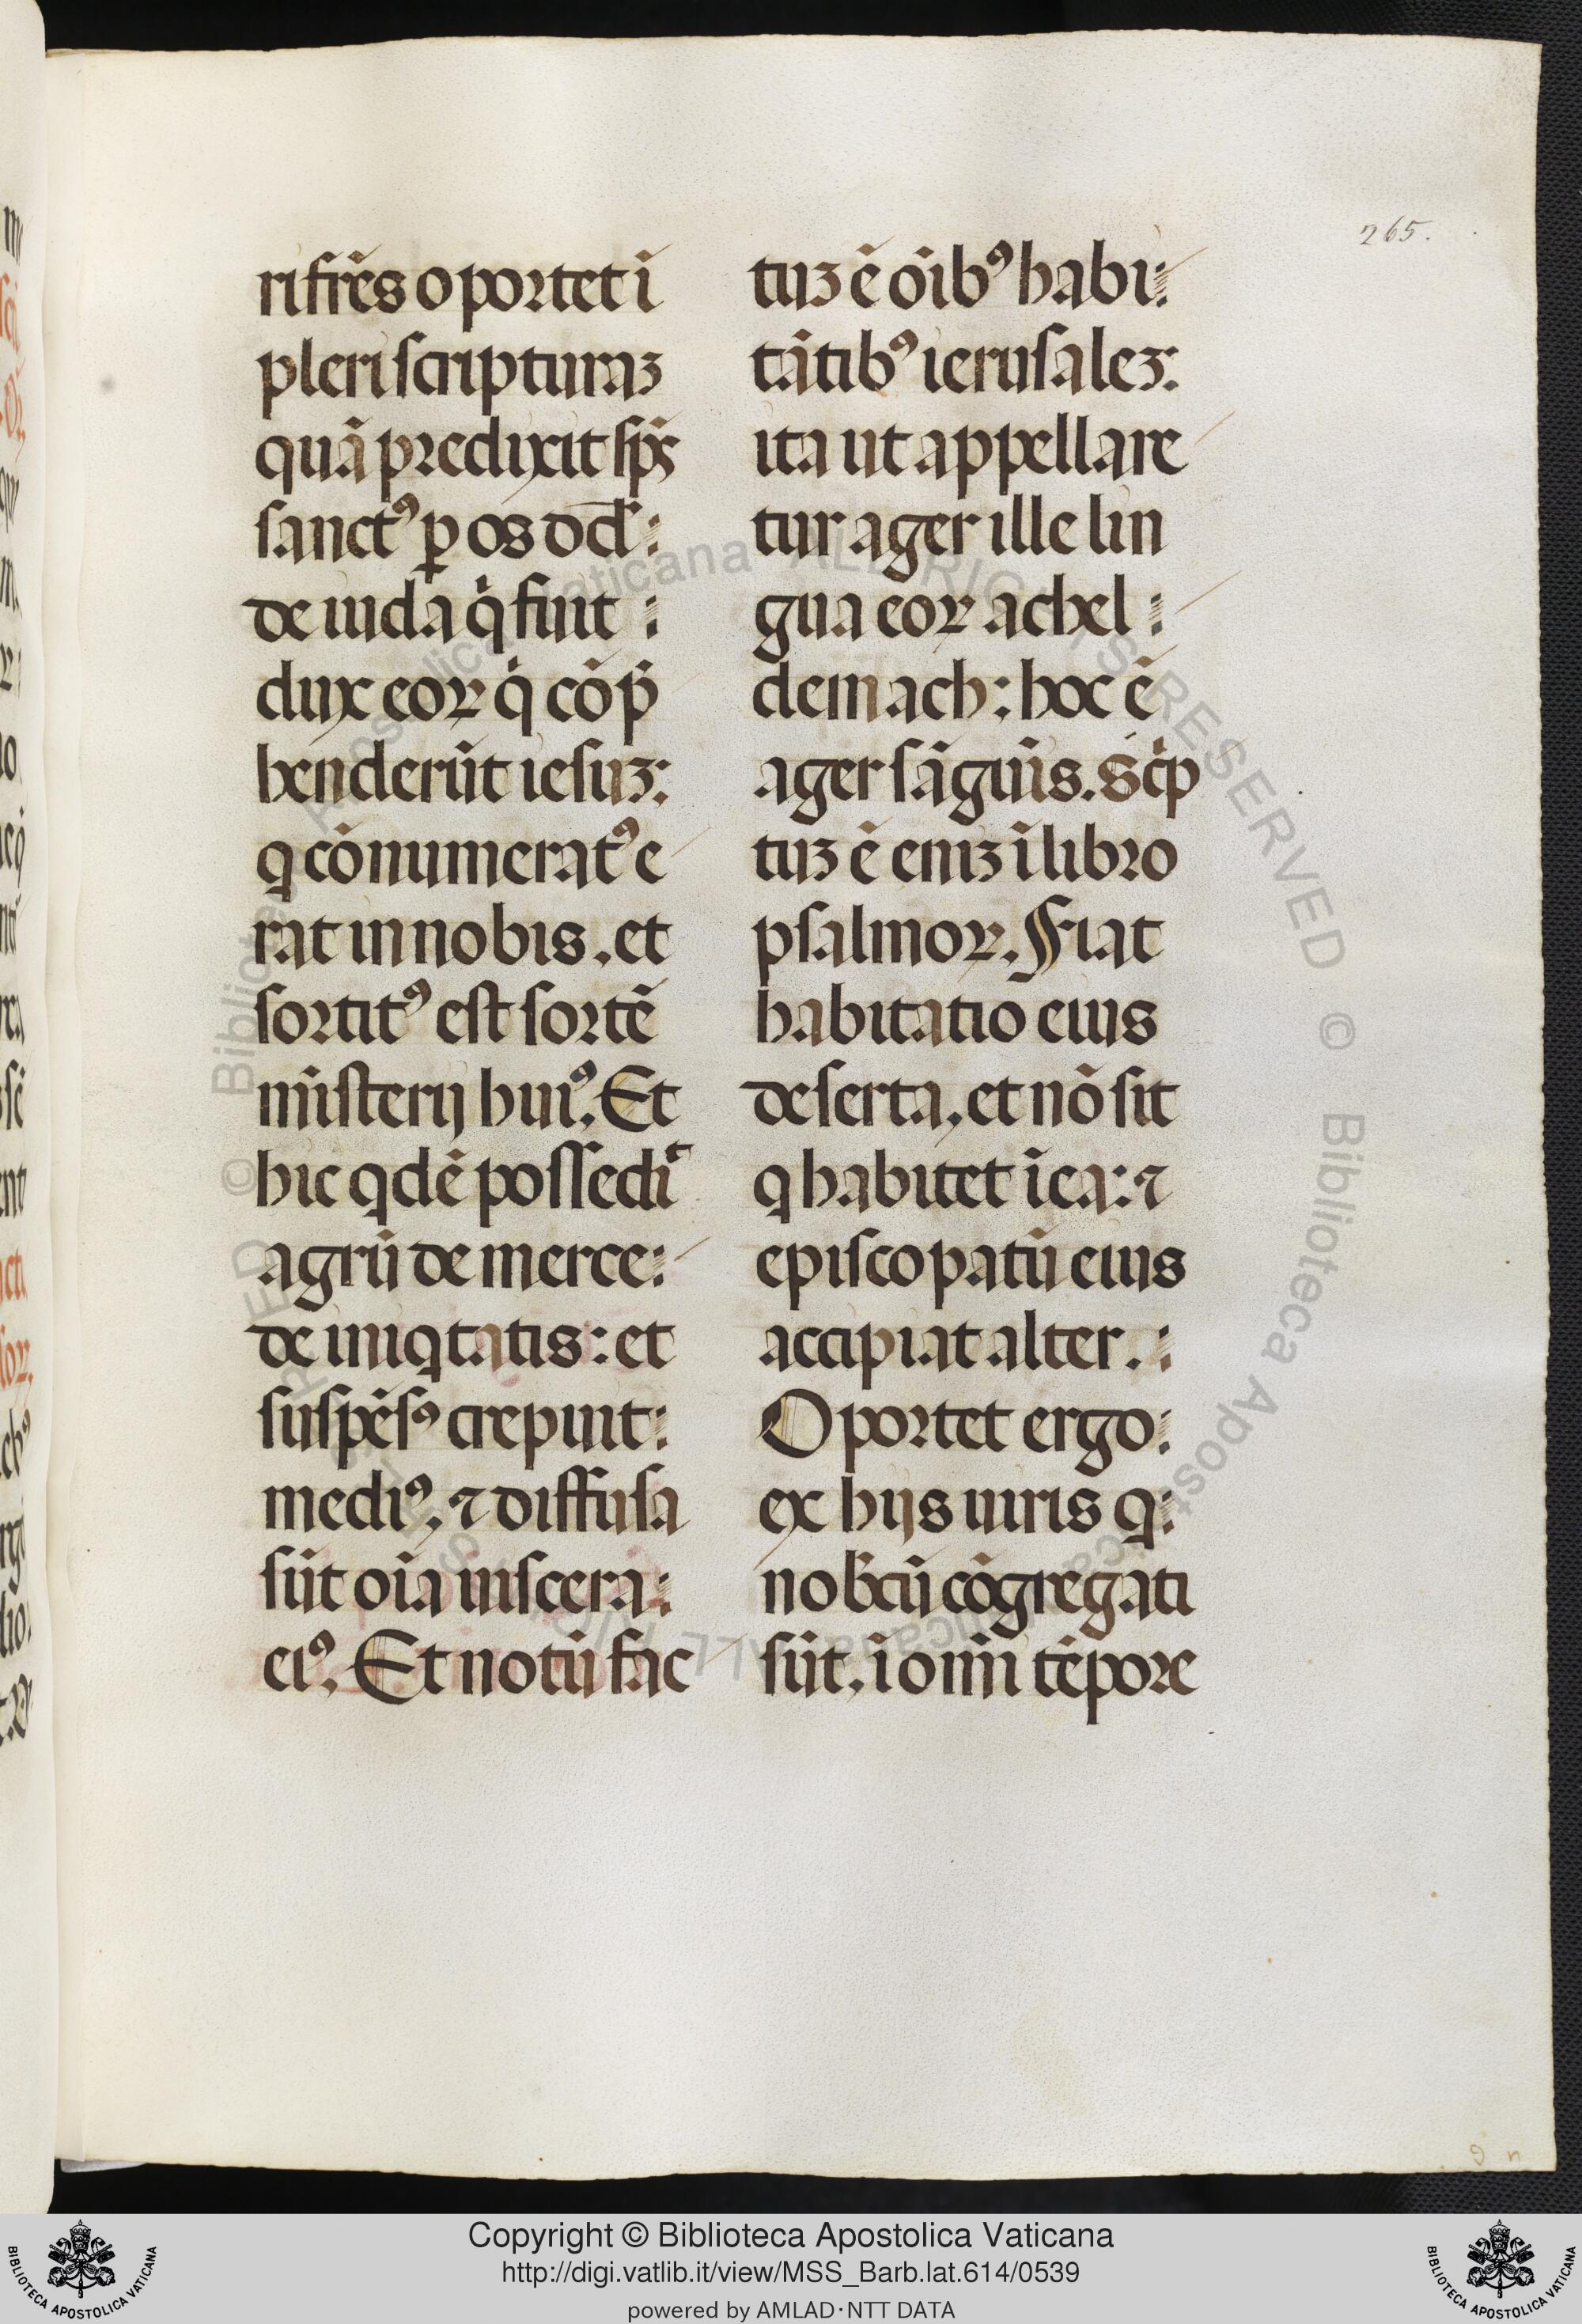 265.
ri frēs oportet ī
pleri scripturaꝫ
quā predixit sp̄s
sanctꝰ ꝑ os dd̄:
de iuda q̇ fuit :
dux eoꝝ q̇ cō p̄
henderūt iesuꝫ:
q cōnumeratꝰ e
rat in nobis. et
sortitꝰ est sortē
mīsterij huiꝰ. Et
hic qdē possediᵗ
agrū de merce:
de iniqtatis: et
suspēsꝰ crepuit:
mediꝰ. ⁊ diffusa
sūt oīa uiscera:
eiꝰ. Et notū fac
tuꝫ ē oībꝰ habi:
tātibꝰ ierusaleꝫ:
ita ut appellare
tur ager ille lin
gua eoꝝ achel :
demach: hoc ē
ager sāguīs. Sc̄p
tuꝫ ē eniꝫ ī libro
psalmoꝝ. Fiat
habitatio eius
deserta. et nō sit
q habitet ī ea: ⁊
episcopatū eius
accipiat alter. :
Oportet ergo:
ex hijs uiris q:
nob̄cū cōgregati
sūt. ī omī tēpore
Copyright © Biblioteca Apostolica Vaticana
http://digi.vatlib.it/view/MSS_Barb.lat.614/0539
powered by AMLAD·NTT DATA
BIBLIOTECA APOSTOLICA VATICANA
BIBLIOTECA APOSTOLICA VATICANA